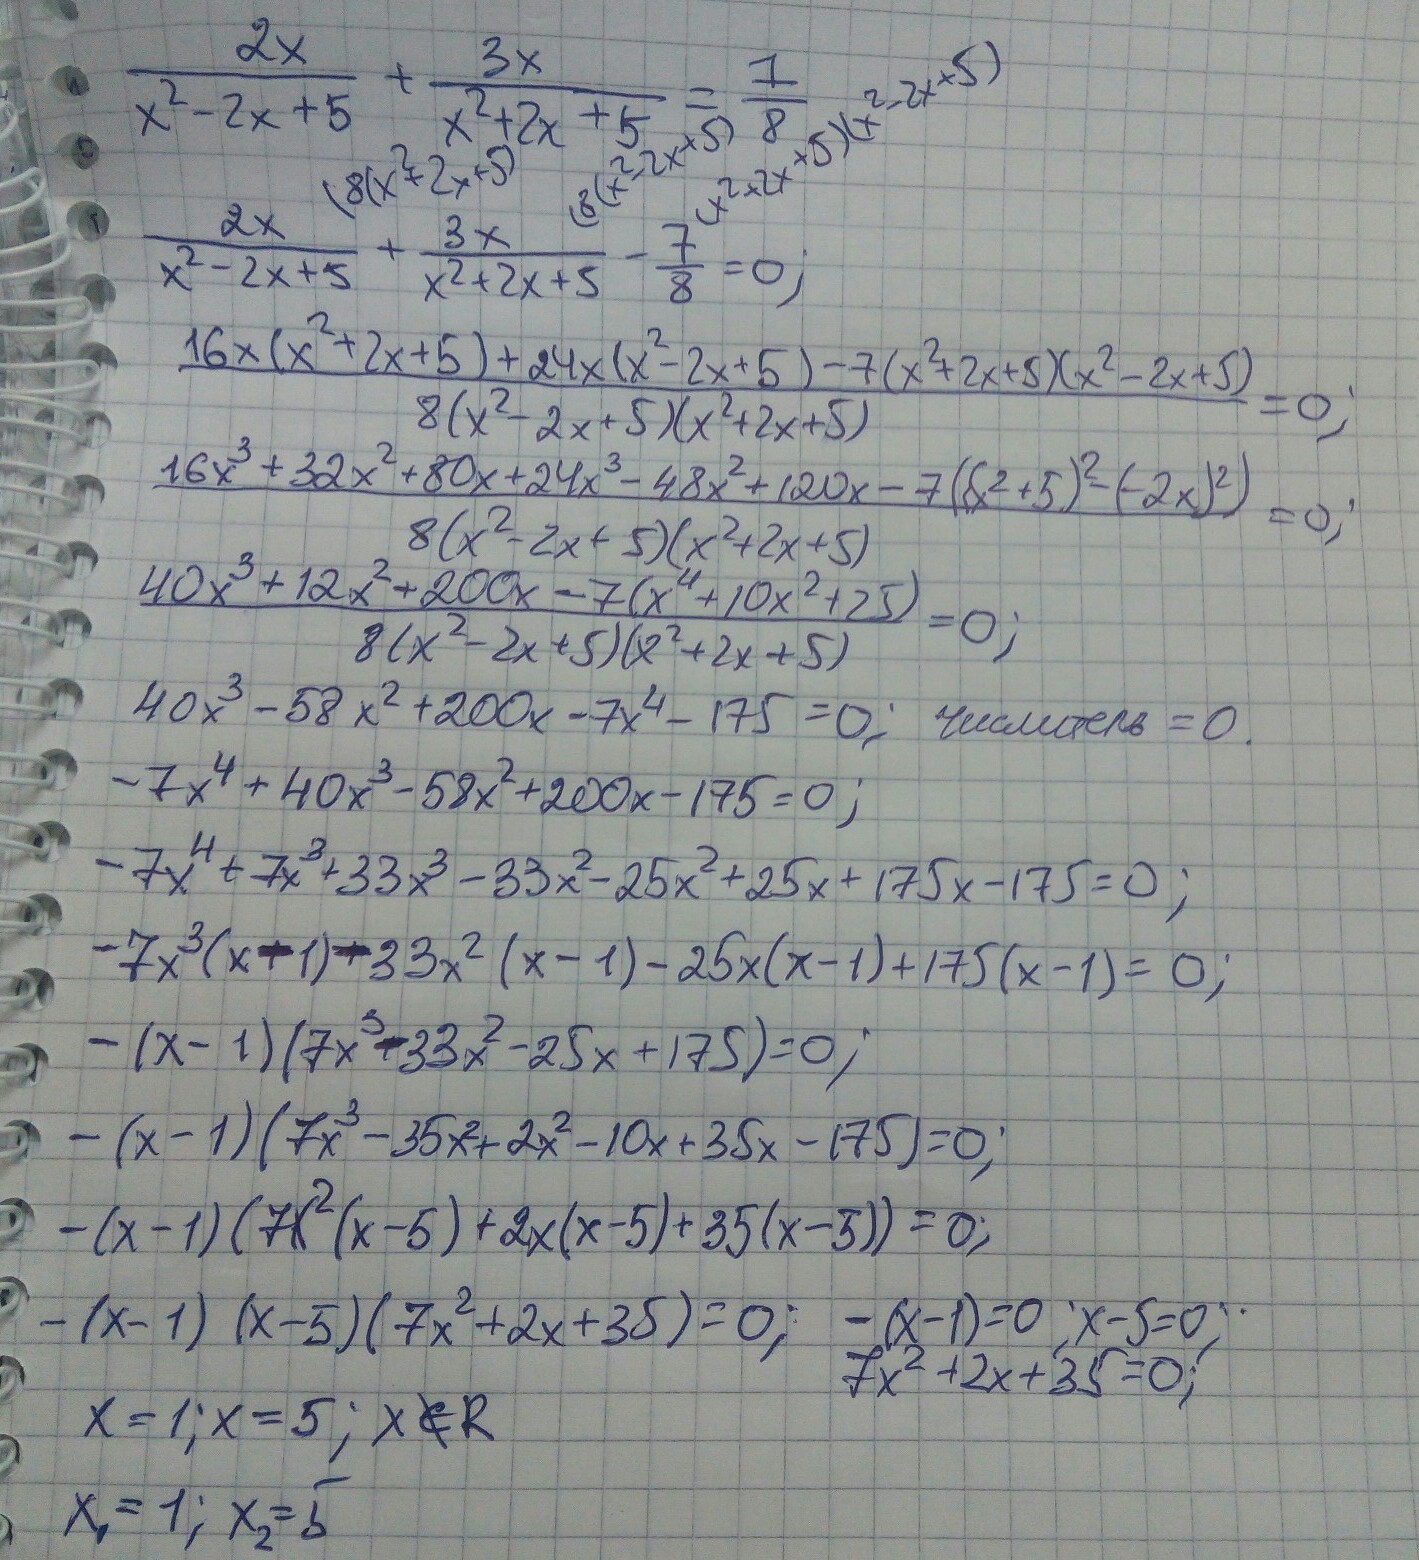 2x/(x²-2x+5) + 3x/(x²+2x+5) = 7/8
(8(x²+2x+5) (8(x²-2x+5) (x²+2x+5)(x²-2x+5)
2x/(x²-2x+5) + 3x/(x²+2x+5) - 7/8 = 0;
(16x(x²+2x+5)+24x(x²-2x+5)-7(x²+2x+5)(x²-2x+5))/(8(x²-2x+5)(x²+2x+5)) = 0;
(16x³+32x²+80x+24x³-48x²+120x-7((x²+5)²-(-2x)²))/(8(x²-2x+5)(x²+2x+5)) = 0;
(40x³+12x²+200x-7(x⁴+10x²+25))/(8(x²-2x+5)(x²+2x+5)) = 0;
40x³-58x²+200x-7x⁴-175=0; числитель = 0.
-7x⁴+40x³-58x²+200x-175=0;
-7x⁴+7x³+33x³-33x²-25x²+25x+175x-175=0;
-7x³(x-1)+33x²(x-1)-25x(x-1)+175(x-1)=0;
-(x-1)(7x³-33x²-25x+175)=0;
-(x-1)(7x³-35x²+2x²-10x+35x-175)=0;
-(x-1)(7x²(x-5)+2x(x-5)+35(x-5))=0;
-(x-1)(x-5)(7x²+2x+35)=0; -(x-1)=0; x-5=0;
7x²+2x+35=0;
x=1; x=5; x∉R
x₁=1; x₂=5